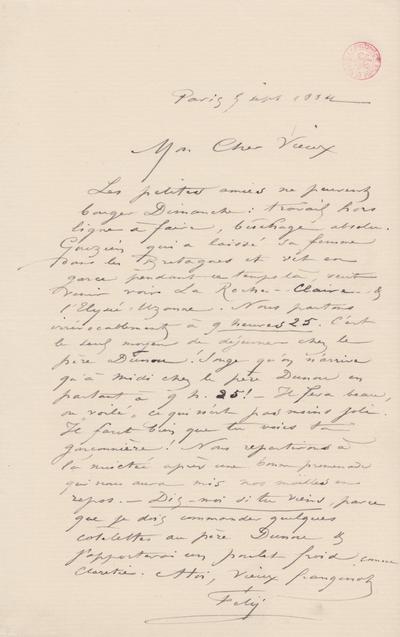 Paris 5 sept 1884
Mon Cher Vieux
Les petites amies ne peuvent
bouger Dimanche : travail hors
ligne à faire, bêchage absolu.
Gouzien qui a laissé sa femme
dans les Bretagnes et vit en
garce pendant ce temps là, veut
venir voir La Roche-Claire &
l'Elysée-Uzanne. Nous partons
irrévocablement à 9 heures 25. C'est
le seul moyen de déjeuner chez le
père Dunou ! Songe qu'on n'arrive
qu'à midi chez le père Dunou en
partant à 9 h. 25 ! — Il fera beau,
ou voilé, ce qui n'est pas moins joli.
Il faut bien que tu voies ta
garçonnière ! Nous repartirons à
la nuitée après une bonne promenade
qui nous aura mis nos moelles en
repos. — Dis-moi si tu viens, parce
que je dois commander quelques
cotelettes au père Dunou &
j'apporterai un poulet froid, comme
Claretie. A toi, vieux frangin
Fély